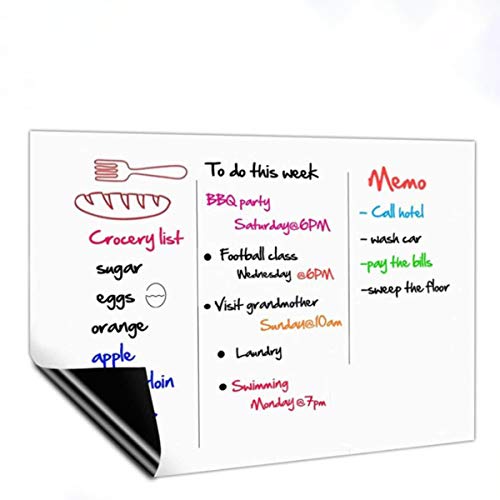 Crocery list
sugar
eggs
orange
apple
To do this week
BBQ party
Saturday@6PM
• Football class
Wednesday @6PM
• Visit grandmother
Sunday@10am
• Laundry
• Swimming
Monday @7pm
Memo
- Call hotel
- wash car
-pay the bills
-sweep the floor